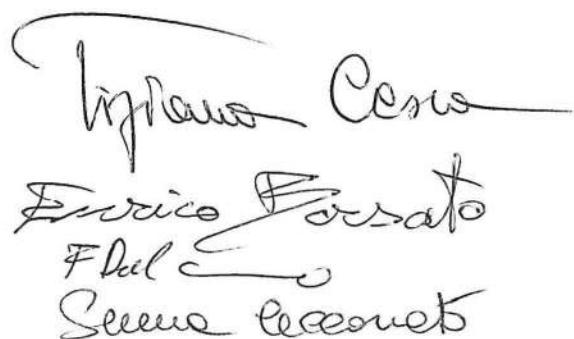 Tiziano Cesca
Enrico Borsato
F Dal
Serena Cecconato